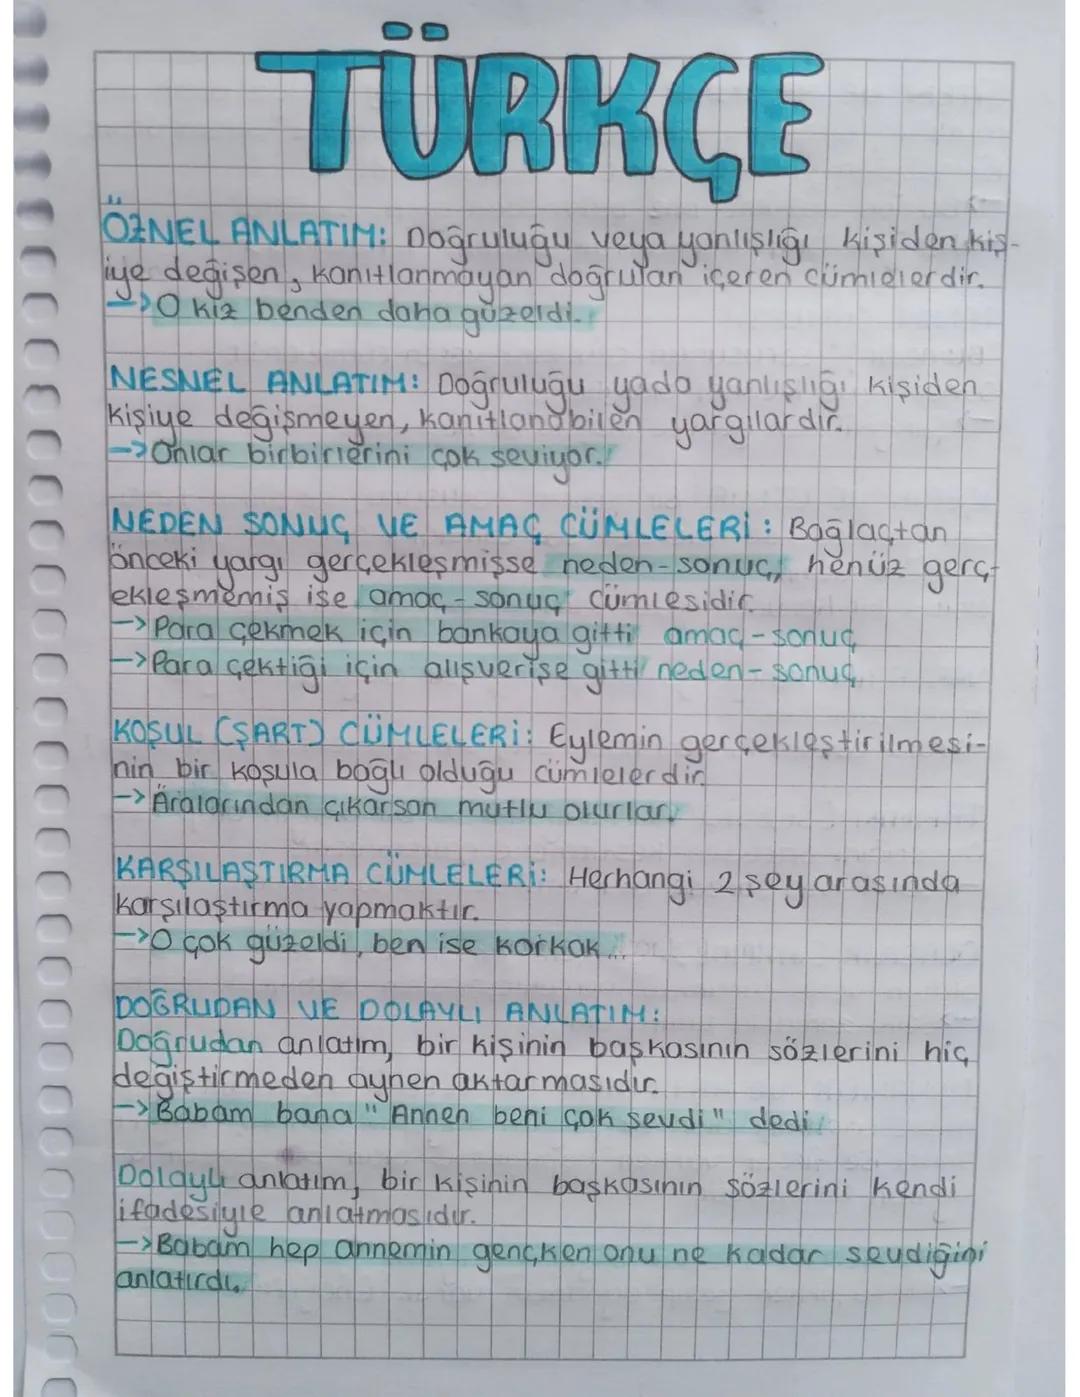 TÜRKÇE
ÖZNEL ANLATIM: Doğruluğu veya yanlışlığı kişiden kiş-
iye değişen, kanıtlanmayan doğruları içeren cümlelerdir.
→O kız benden daha güzeldi.
NESNEL ANLATIM: Doğruluğu yada yanlışlığı kişiden
kişiye değişmeyen, kanıtlanabilen yargılardır.
→Onlar birbirlerini çok seviyor.
NEDEN SONUÇ VE AMAÇ CÜMLELERİ: Bağlaçtan
önceki yargı gerçekleşmişse neden-sonuç, henüz gerç-
ekleşmemiş ise amaç-sonuç cümlesidir.
→Para çekmek için bankaya gitti amaç-sonuç
→Para çektiği için alışverişe gitti neden-sonuç
KOŞUL (ŞART) CÜMLELERİ: Eylemin gerçekleştirilmesi-
nin bir koşula bağlı olduğu cümlelerdir.
→Aralarından çıkarsan mutlu olurlar.
KARŞILAŞTIRMA CÜMLELERİ: Herhangi 2 şey arasında
karşılaştırma yapmaktır.
→O çok güzeldi, ben ise korkak...
DOĞRUDAN VE DOLAYLI ANLATIM:
Doğrudan anlatım, bir kişinin başkasının sözlerini hiç
değiştirmeden aynen aktarmasıdır.
→Babam bana "Annen beni çok sevdi" dedi.
Dolaylı anlatım, bir kişinin başkasının sözlerini kendi
ifadesiyle anlatmasıdır.
→Babam hep annemin gençken onu ne kadar sevdiğini
anlatırdı.